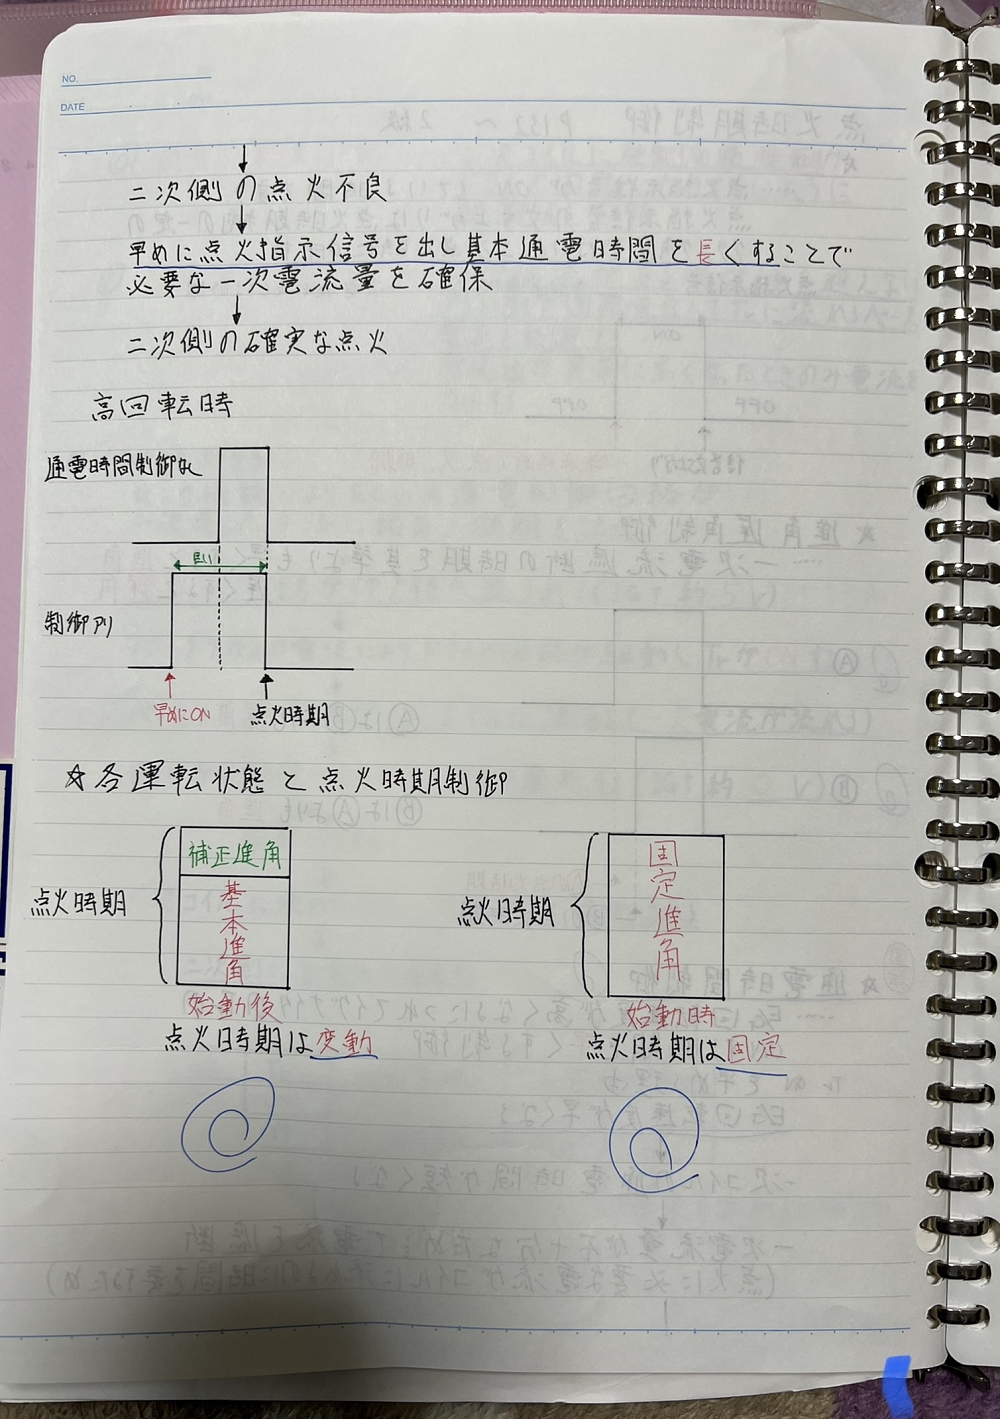 NO.
DATE
二次側の点火不良
早めに点火指示信号を出し基本通電時間を長くすることで
必要な一次電流量を確保
二次側の確実な点火
高回転時
通電時間制御なし
長い
制御アリ
早めにON
点火時期
☆各運転状態と点火時期制御
点火時期
補正進角
基本進角
始動後
点火時期は変動
点火時期
固定進角
始動時
点火時期は固定